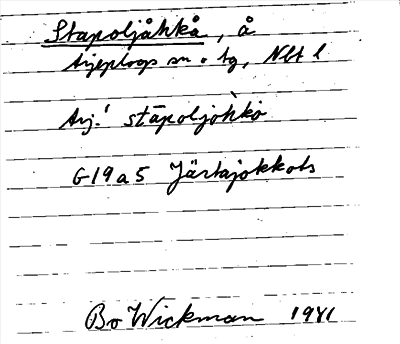 Stapoljåhkå, å
Arjeplogs sn o tg, Nbt l
Arj.! stāpoljòhkò
G19a5 Järtajokkots
Bo Wickman 1941